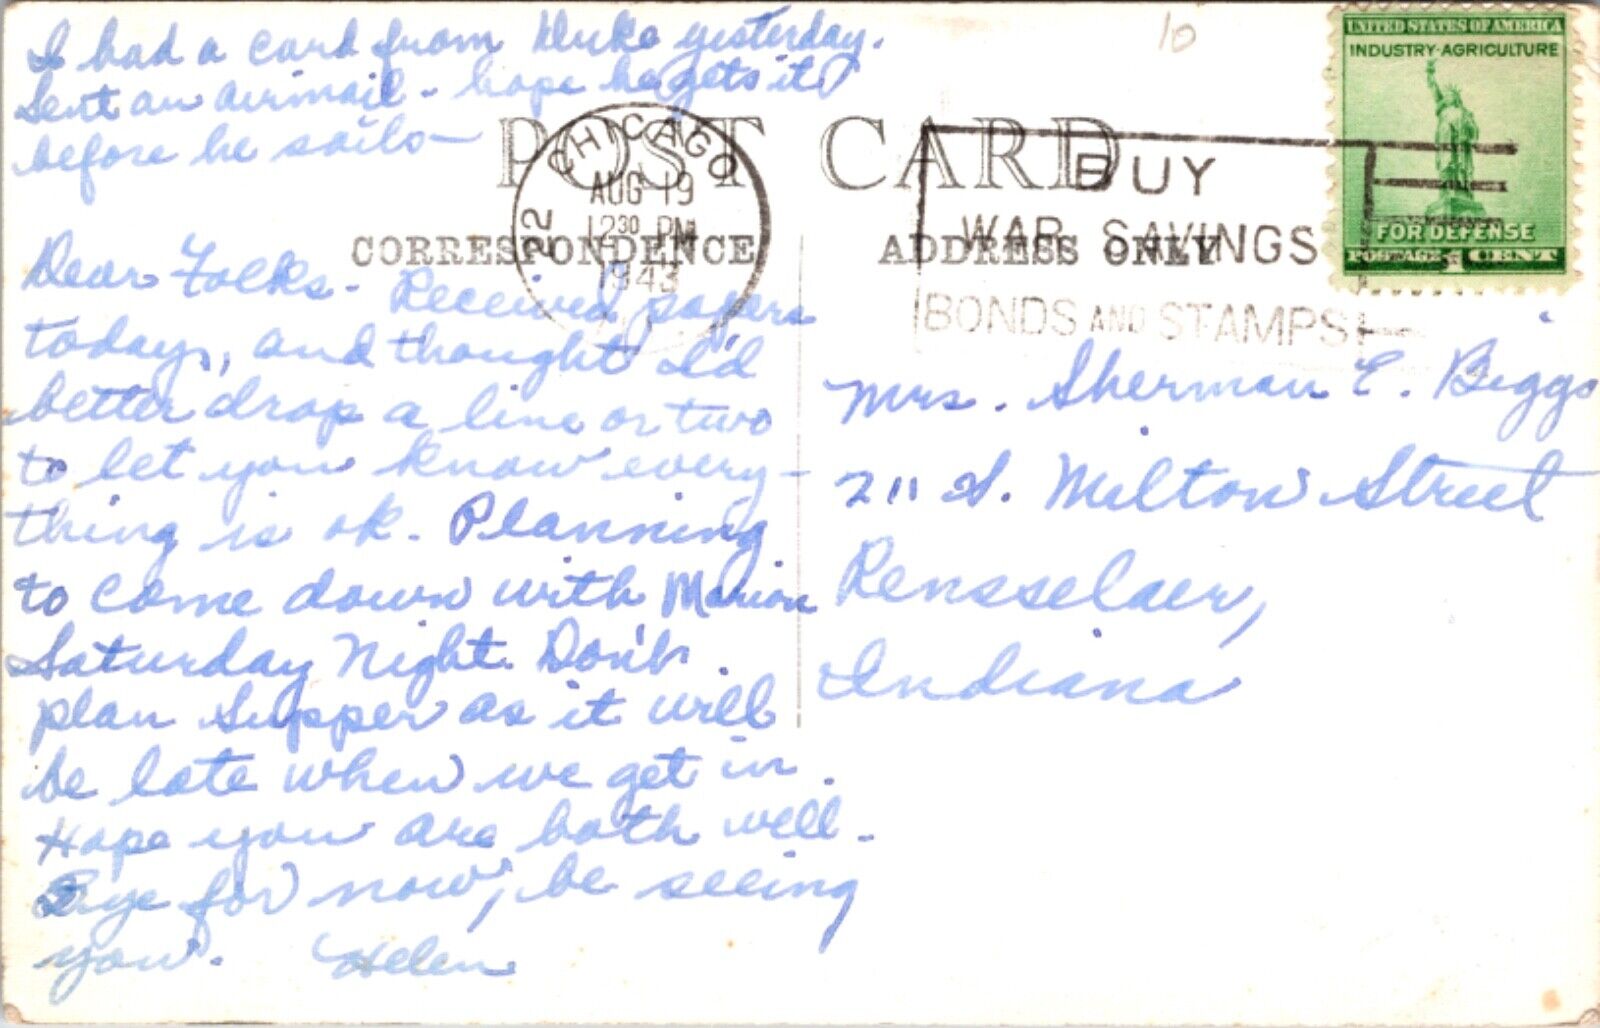 I had a card from Duke yesterday.
Sent an airmail - hope he gets it
before he sails -
POST CARD
CORRESPONDENCE
ADDRESS ONLY
CHICAGO
22
AUG 19
12 30 PM
1943
BUY
WAR SAVINGS
BONDS AND STAMPS
UNITED STATES OF AMERICA
INDUSTRY-AGRICULTURE
FOR DEFENSE
POSTAGE 1 CENT
10
Dear Folks - Received papers
today, and thought I'd
better drop a line or two
to let you know every-
thing is ok. Planning
to come down with Marion
Saturday Night. Don't
plan supper as it will
be late when we get in.
Hope you are both well.
Bye for now, be seeing
you. Helen
Mrs. Sherman E. Biggs
211 S. Milton Street
Rensselaer,
Indiana